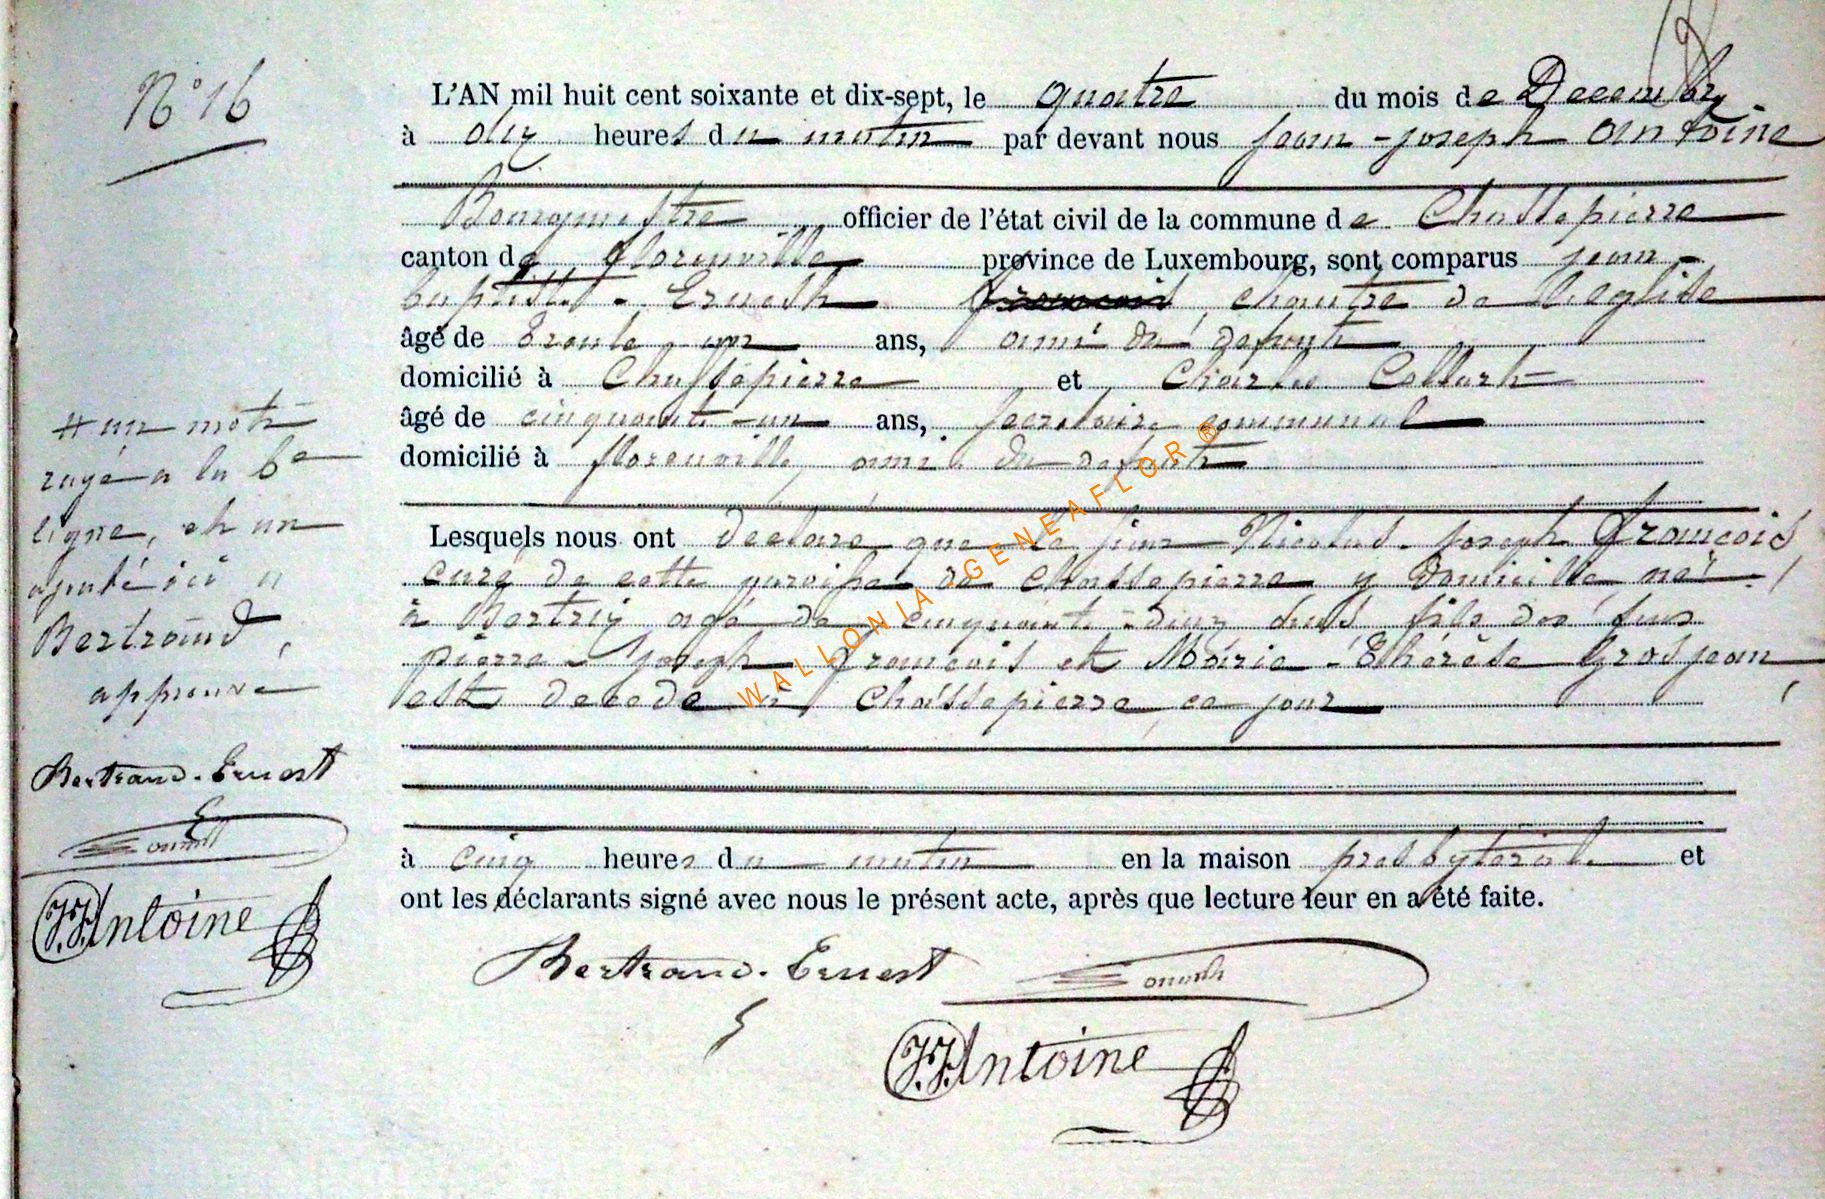 N° 16
L'AN mil huit cent soixante et dix-sept, le quatre du mois de Decembre
à dix heures du matin par devant nous jean-joseph antoine
Bourgmestre officier de l'état civil de la commune de Chassepierre
canton de florenville province de Luxembourg, sont comparus jean-
baptiste - Ernest françois, chantre de l'eglise
âgé de trente un ans, ami du defunt
domicilié à Chassepierre et Charles Collart
âgé de cinquante-un ans, secretaire communal
domicilié à florenville, ami du defunt
Lesquels nous ont declaré que le sieur Nicolas-joseph françois,
curé de cette paroisse de Chassepierre y domicilié, né
à Bertrix agé de cinquante-deux ans fils des feus
pierre-joseph françois et Marie-Thérèse Grosjean,
est decedé à Chassepierre, ce jour
à cinq heures du matin en la maison presbyterale et
ont les déclarants signé avec nous le présent acte, après que lecture leur en a été faite.
# un mot
rayé a la 6e
ligne, et un
ajouté ici #
Bertrand,
approuvé
Bertrand-Ernest
JJAntoine
Bertrand-Ernest
JJAntoine
WALLONIA GENEAFLOR ®